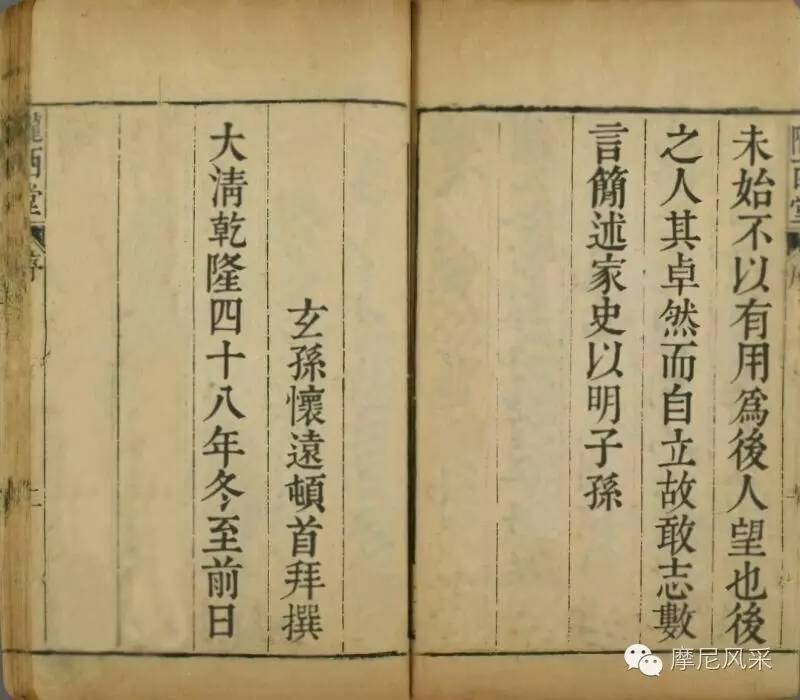 未始不以有用爲後人望也後
之人其卓然而自立故敢志數
言簡述家史以明子孫
玄孫懷遠頓首拜撰
大清乾隆四十八年冬至前日
隴西堂
序
摩尼风采